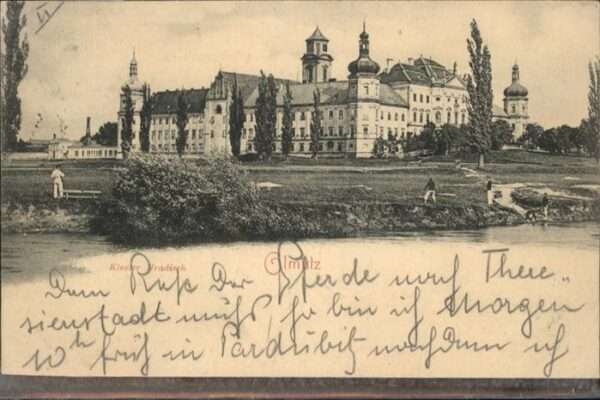 Kloster Hradisch
Olmütz
Dem Ruß der Pferde nach There„
sienstadt muß, so bin ich Morgen
10h früh in Pardubitz nachdem ich